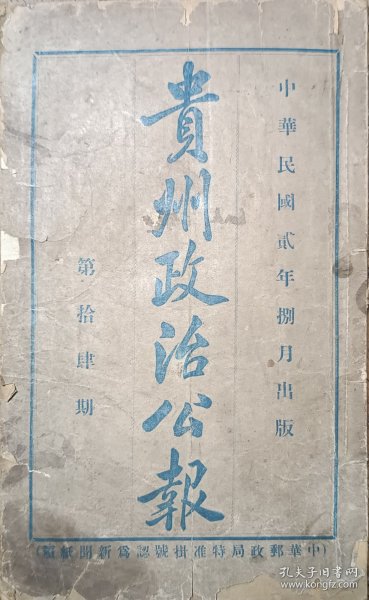 中華民國貳年捌月出版
貴州政治公報
第拾肆期
(中華郵政局特准掛號認爲新聞紙類)
孔夫子旧书网
kongfz.com